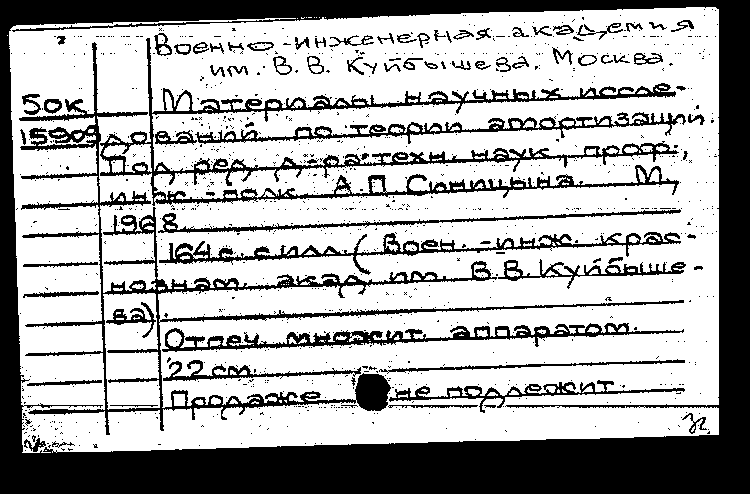 Военно-инженерная академия
им. В.В. Куйбышева. Москва.
50к Материалы научных иссле-
15909 дований по теории амортизации.
Под ред. д-ра техн. наук, проф.,
инж.-полк. А.П. Синицына. М.,
1968.
164 с. с илл. (Воен.-инж. крас-
нознам. акад. им. В.В. Куйбыше-
ва).
Отпеч. множит. аппаратом.
22 см.
Продаже не подлежит.